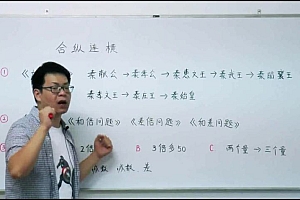 合纵连横
① 秦献公 → 秦孝公 → 秦惠文王 → 秦武王 → 秦昭襄王
秦孝文王 → 秦庄王 → 秦始皇
② 《和倍问题》《差倍问题》《和差问题》
2倍 B 3倍多50 C 两个量 → 三个量
差